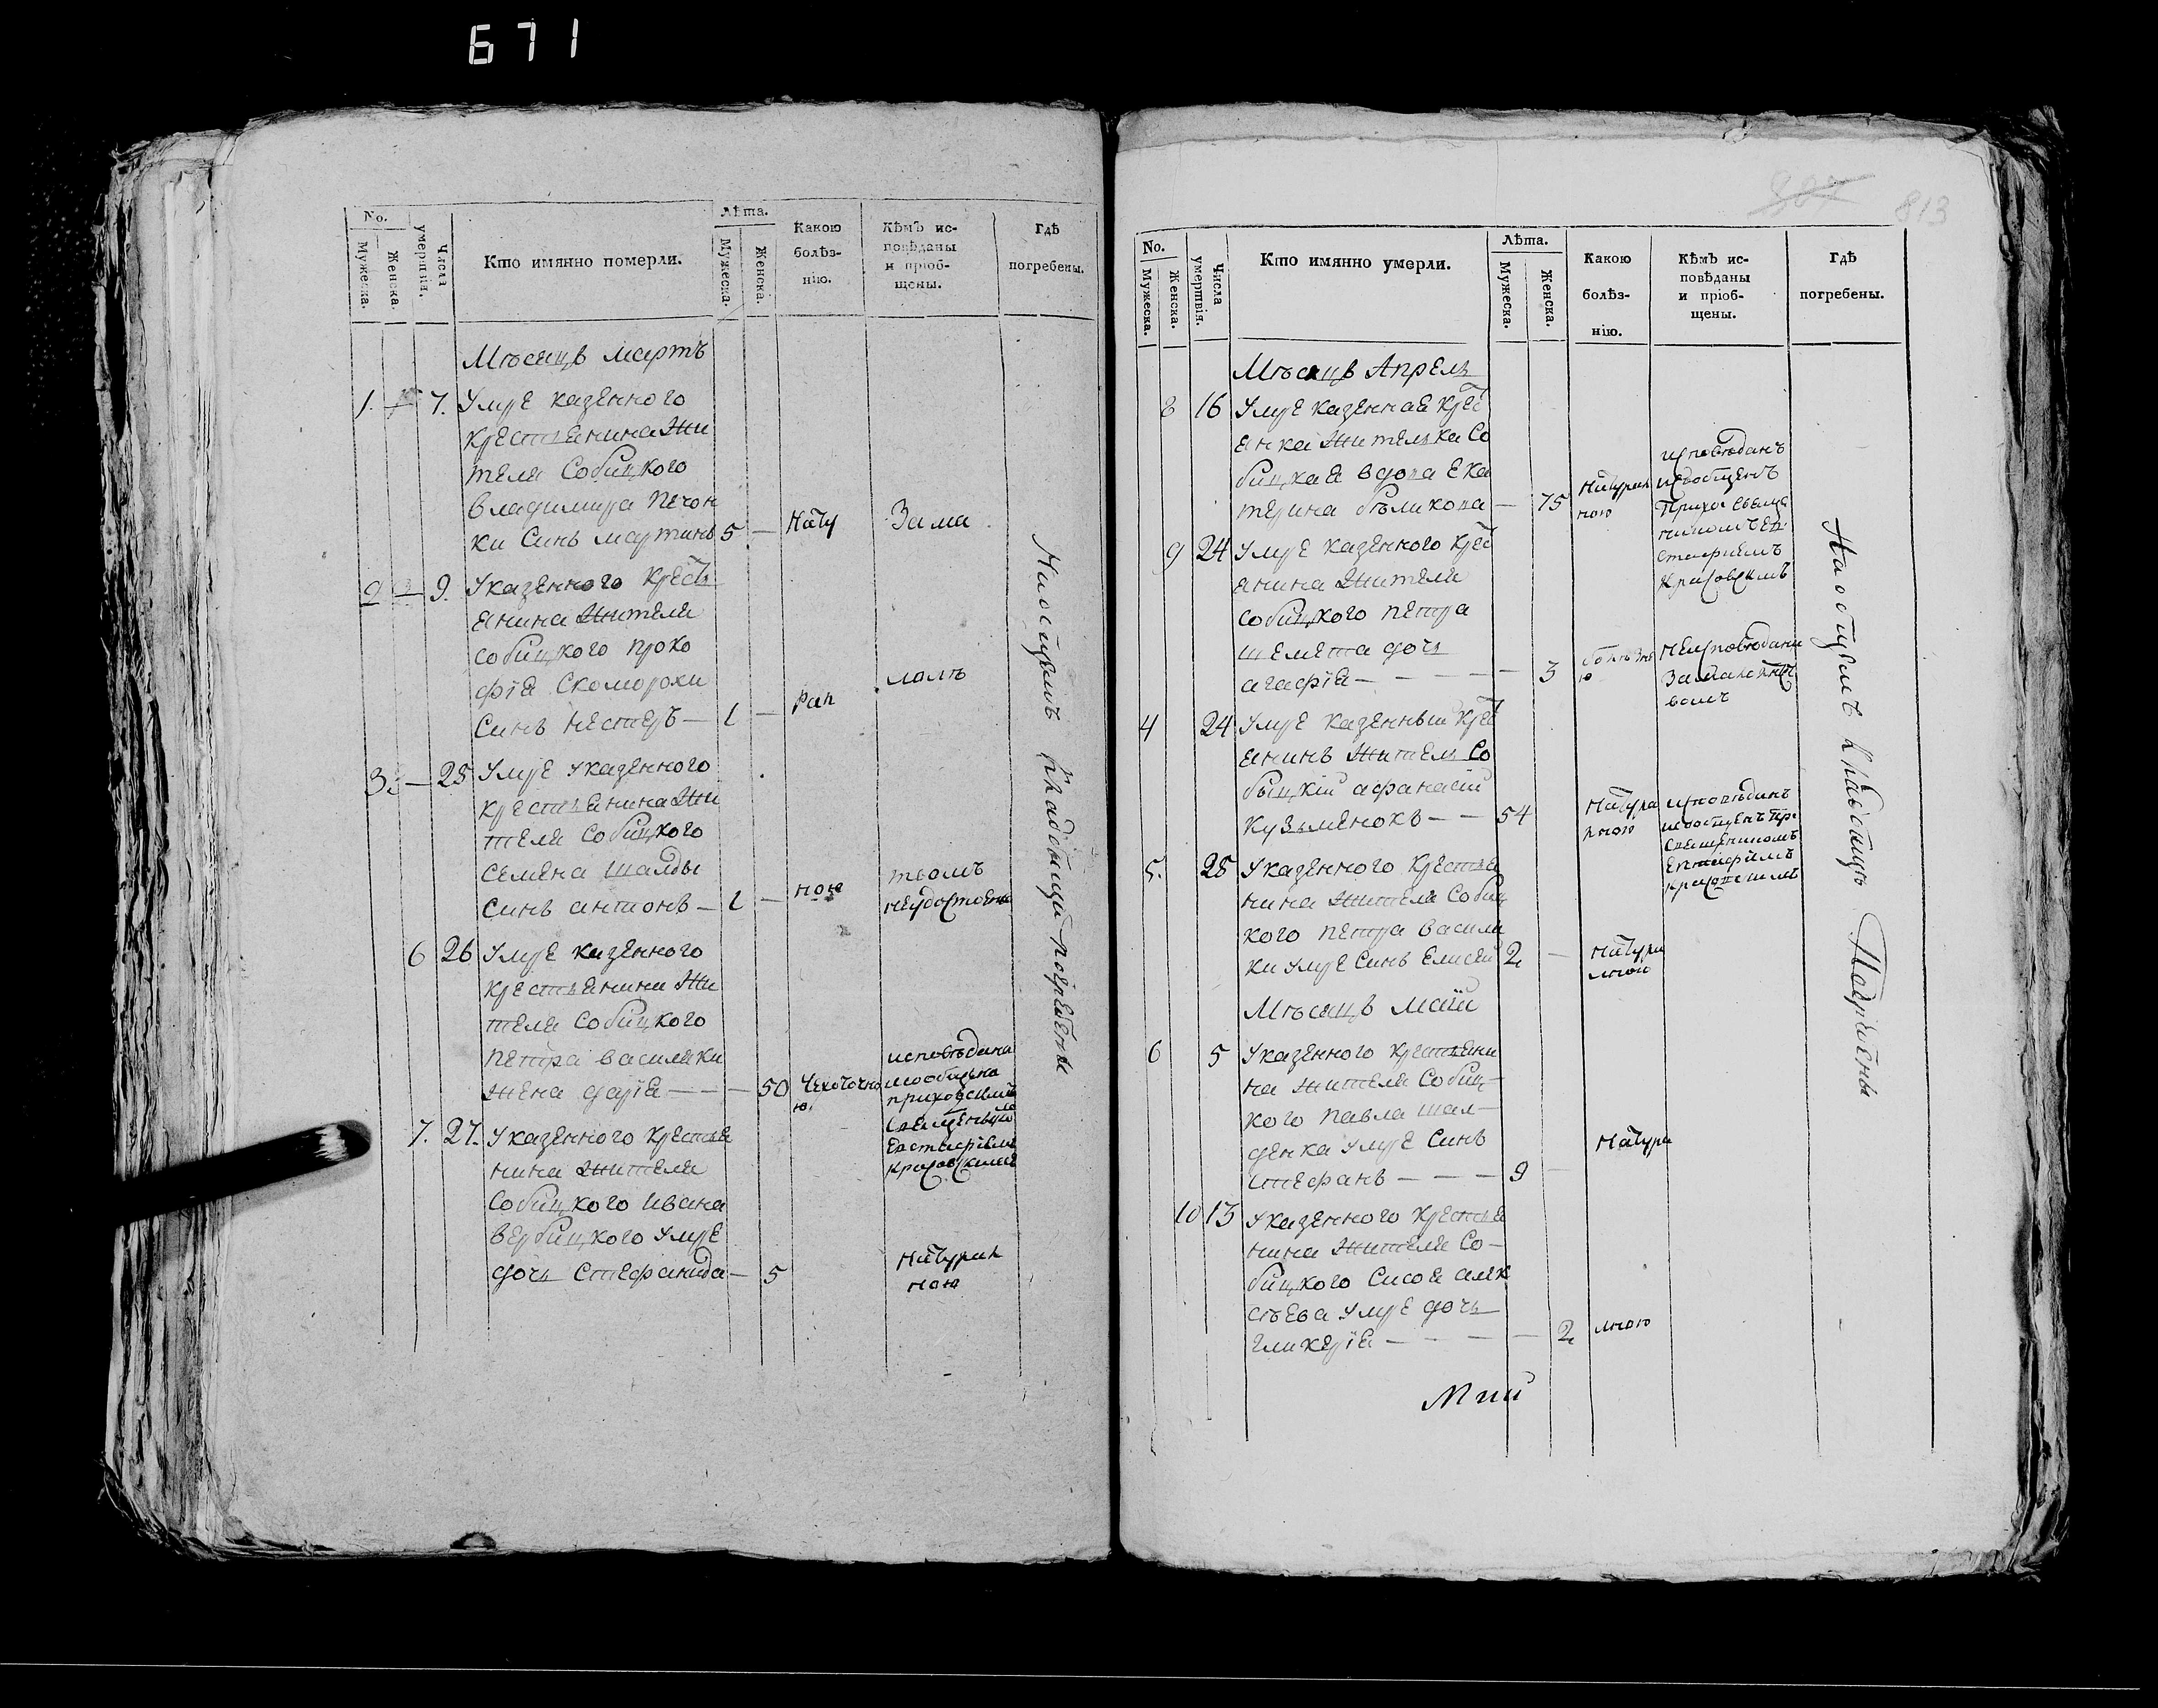 671
No.
Мужеска.
Женска.
Числа умертвія.
Кто имянно померли.
Лѣта.
Мужеска.
Женска.
Какою болѣз-
нію.
Кѣмъ ис-
повѣданы
и пріоб-
щены.
Гдѣ
погребены.
Мѣсяцъ мартъ
1. 7. Умре казенного
крестьянина жи
теля Собицкого
владимира Печон
ки Синъ мартинъ 5 — Нату Зама
2 9. У казенного крестъ
янина жителя
собицкого проко
фія Скоморохи
Синъ нестеръ — 1 — рал лолѣ
3. — 25 Умре у казенного
крестьянина жи
теля собицкого
семена шалды
синъ антонъ — 1 — ною твомъ
неудостоен
6 26 Умре казенного
крестьянина жи
теля собицкого
петра василяки
жена дарія — — — 50 Чехоточно
ю.
исповѣдана
приходскимъ
священико
Евстафіемъ
Красовскимъ
7. 27. У казенного крестья
нина жителя
собицкого ивана
вербицкого умре
дочь Стефанида — 5 Натурал
ною
На общемъ кладбищи погребены
813
No.
Мужеска.
Женска.
Числа умертвія.
Кто имянно умерли.
Лѣта.
Мужеска.
Женска.
Какою
болѣз-
нію.
Кѣмъ ис-
повѣданы
и пріоб-
щены.
Гдѣ
погребены.
Мѣсяцъ Апрель
8 16 Умре казенная крес
янка жителька Со
бицкая вдова Ека
терина бѣликова — 75 Натурал
ною
исповѣданъ
иѡобщенъ
Прихо Свяще
никомъ Ев
стафіемъ
Красовскимъ
9 24 Умре казенного крес
янина жителя
собицкого петра
шемета дочь
агафія — — — — — 3 неисповѣдани
За малолѣтст
вомъ
4 24 Умре казенный крес
янинъ житель Со
быцкій афанасій
Кузьменокъ — — 54 Натура
лною
исповѣданъ
Священикомъ
Евстафіемъ
Красовскимъ
5. 25 У казенного крестья
нина жителя собиц
кого петра васили
ки умре Синъ Елисей 2 — Натура
лною
Мѣсяцъ маій
6 5 У казенного крестьяни
на жителя Собиц-
кого павла шал-
денка умре Синъ
Стефанъ — — — 9 — Натура
10 13 У казенного крестья
нина жителя Со-
бицкого Сисоя алек
сѣева умре дочь
гликерія — — — — — 2 лною
На общемъ кладбищѣ Погребены
Маи